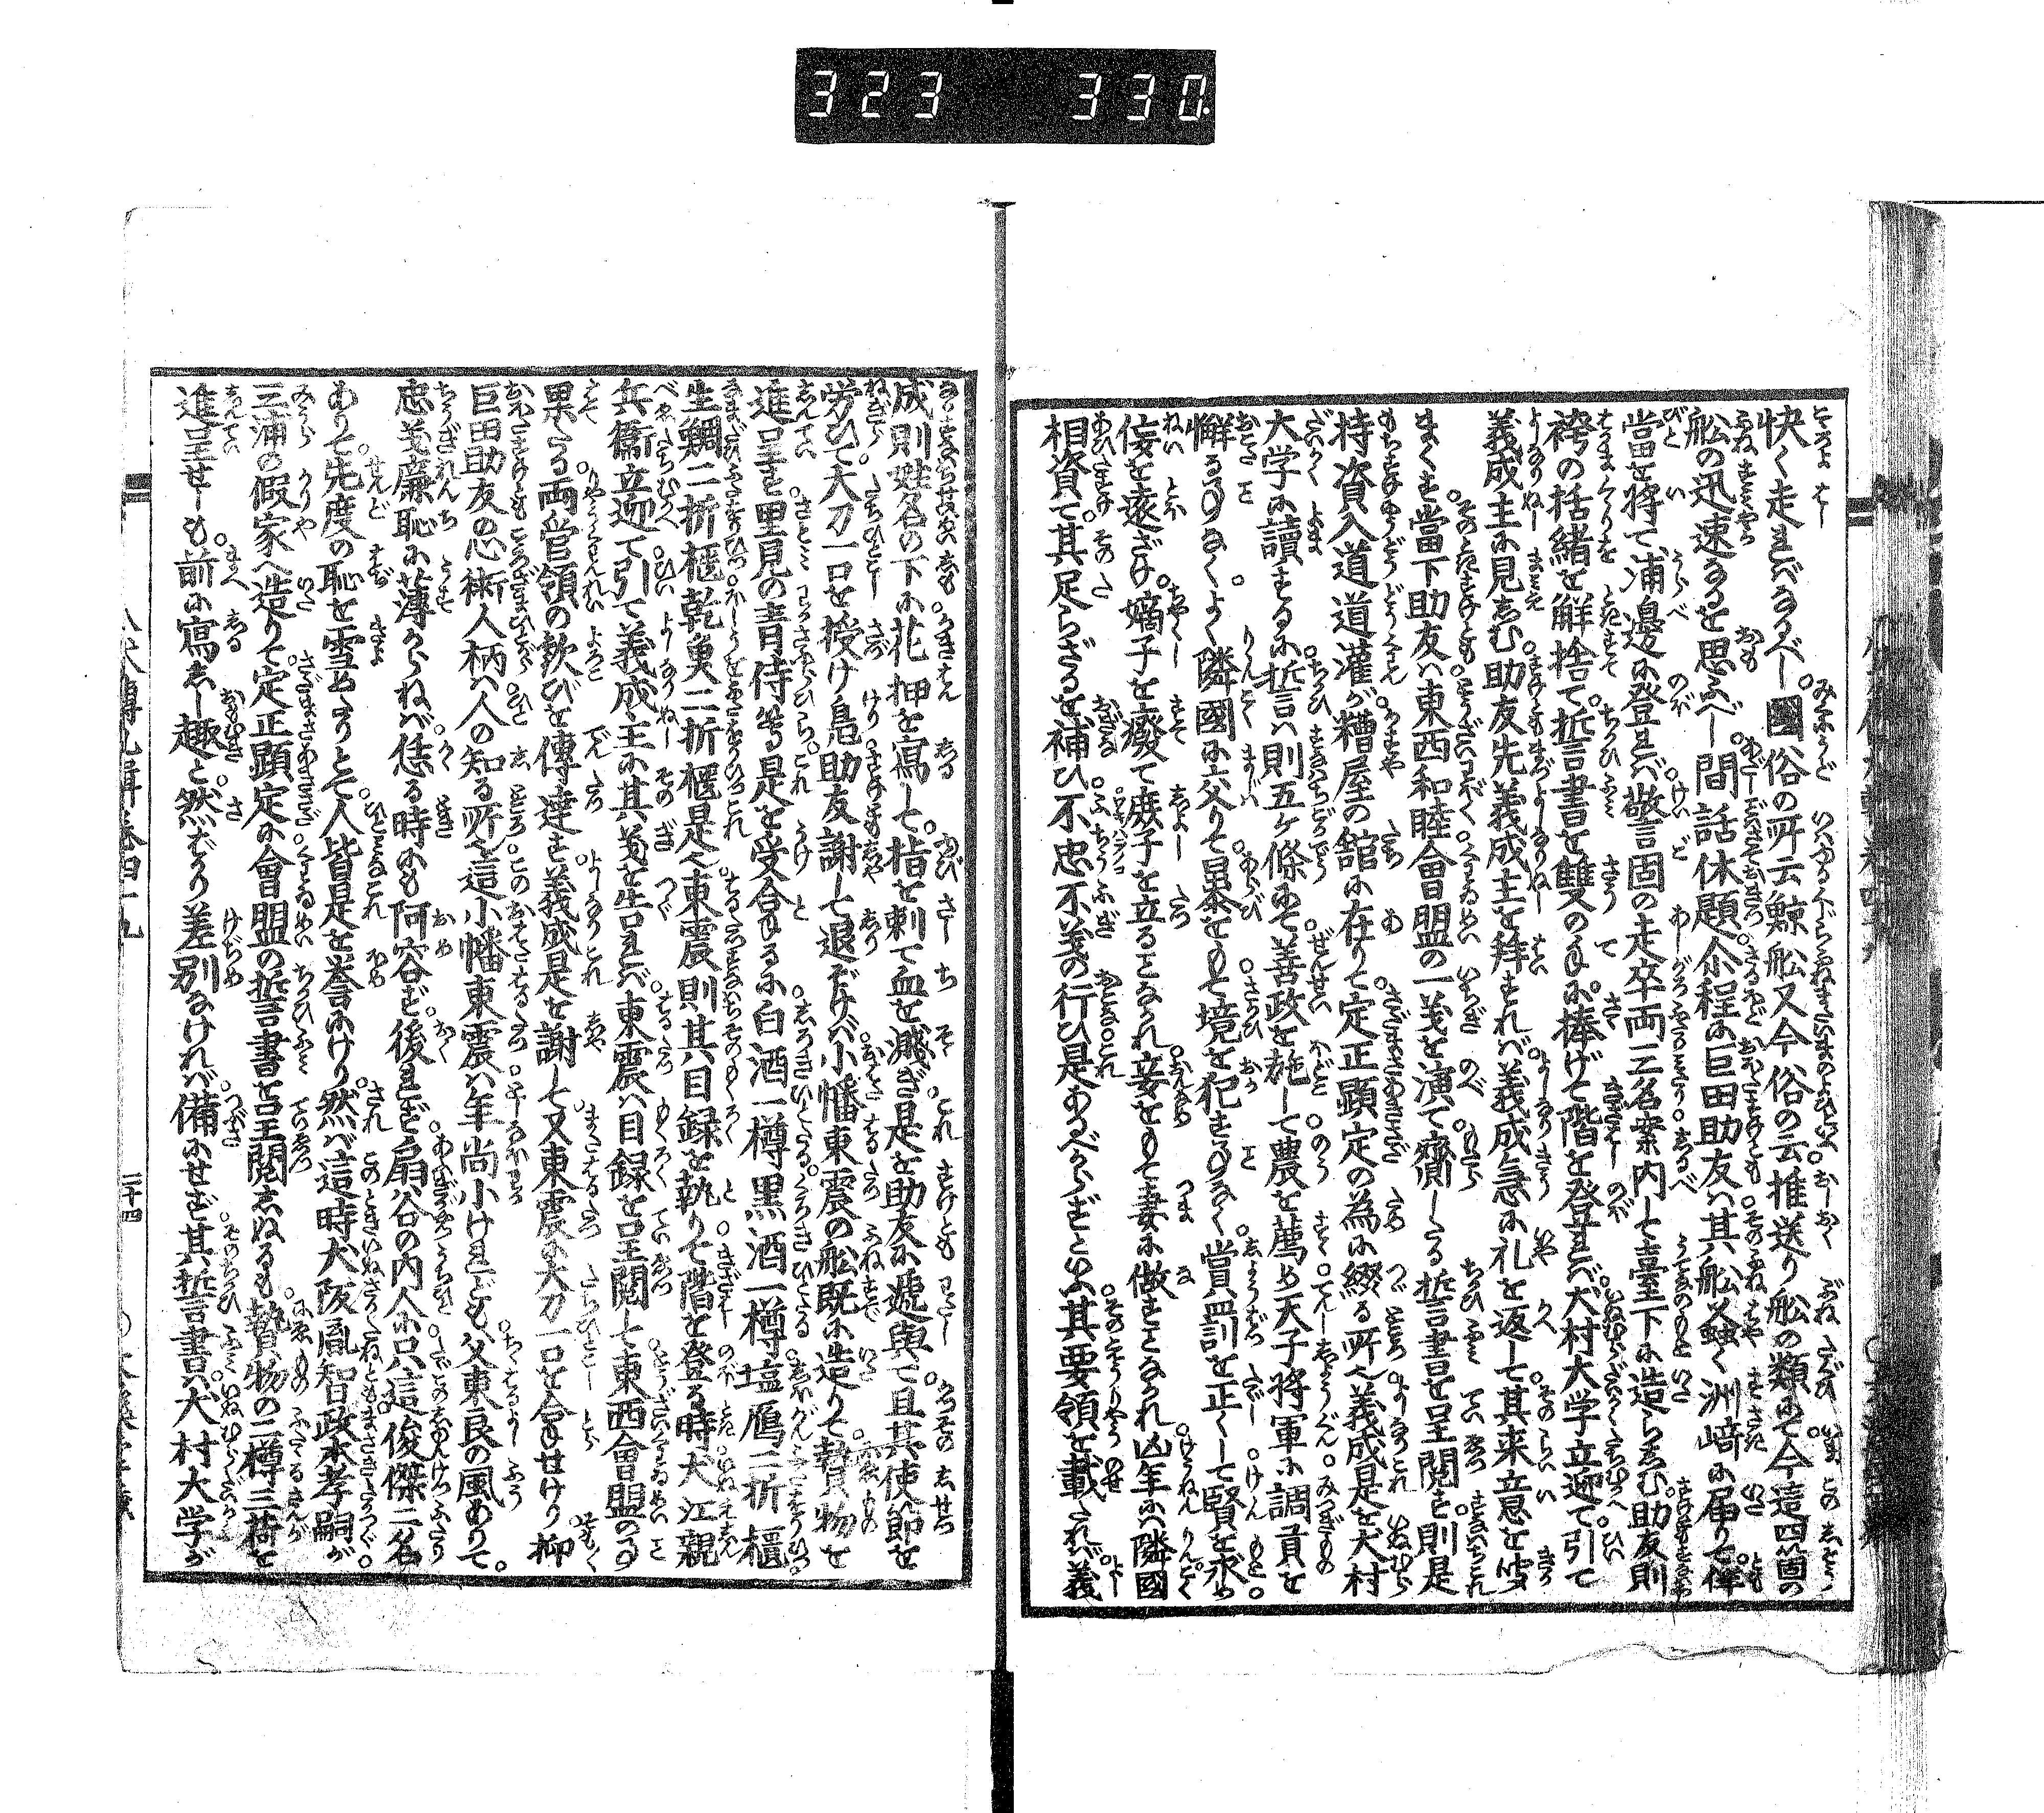 323 330
快く走ればなるべし。國俗の所云鯨舩又今俗の云推送り舩の類にて。今這四箇の
舩の迅速なるを思ふべし。間話休題。尒程に巨田助友は其舩蚤く洲﨑に届りて。伴
當を将て浦邊に登れば。警固の走卒両三名案内して臺下に造らしむ。助友則
袴の括緒を觧捨て。誓書を雙の手に捧げて階を登れば。犬村大学立迎て引て
義成主に見えしむ。助友先義成主を拜すれば。義成急に礼を返して其来意を听
まくす。當下助友は東西和睦會盟の一義を演て。齎したる誓書を呈閲す。則是
持資入道道灌が糟屋の舘に在りて。定正顕定の為に綴る所也。義成是を犬村
大学に讀するに誓言は則五ヶ條にて善政を施して農を薦め天子将軍に調貢を
懈る事なくよく隣國に交りて。暴をもて境を犯す事なく。賞罰を正くして賢を求め
佞を遠ざけ。嫡子を廢て庶子を立ることなかれ。妾をもて妻に做すことなかれ。凶年には隣國
相資て其足らざるを補ひ。不忠不義の行ひ是あるべからずといふ其要領を載たれば。義
成則姓名の下に花押を寫して。指を刺て血を瀝ぎ是を助友に遞與て。且其使節を
労ひて大刀一口を授け。助友謝して退ぞけば。小幡東震の舩既に造りて贄物を
進呈す。里見の青侍等是を受合するに。白酒一樽黒酒一樽塩鴈二折櫃
生鯛二折櫃乾魚二折櫃是也。東震則其目録を執りて階を登る時犬江親
兵衞立迎て引て義成主に其義を告れば。東震は目録を呈閲して東西會盟の事
果たる両管領の歓びを傳達す。義成是を謝して又東震に大刀一口を合せけり。抑
巨田助友の忠術人柄は人の知る所也。這小幡東震は年尚小けれども父東良の風ありて。
忠義廉恥に薄からねば。恁る時にも阿容ず後れず。扇谷の内人に只這俊傑二名
ありて。先度の恥を雪めたりとて人皆是を誉にけり。然ば這時犬阪胤智政木孝嗣が
三浦の假家へ造りて。定正顕定に會盟の誓書を呈閲しぬるも。贄物の二樽三荷を
進呈せしも。前に寫しし趣と。然ばかり差別なければ。備にせず。其誓書只犬村大学が
八犬傳九輯巻四十九
二十四